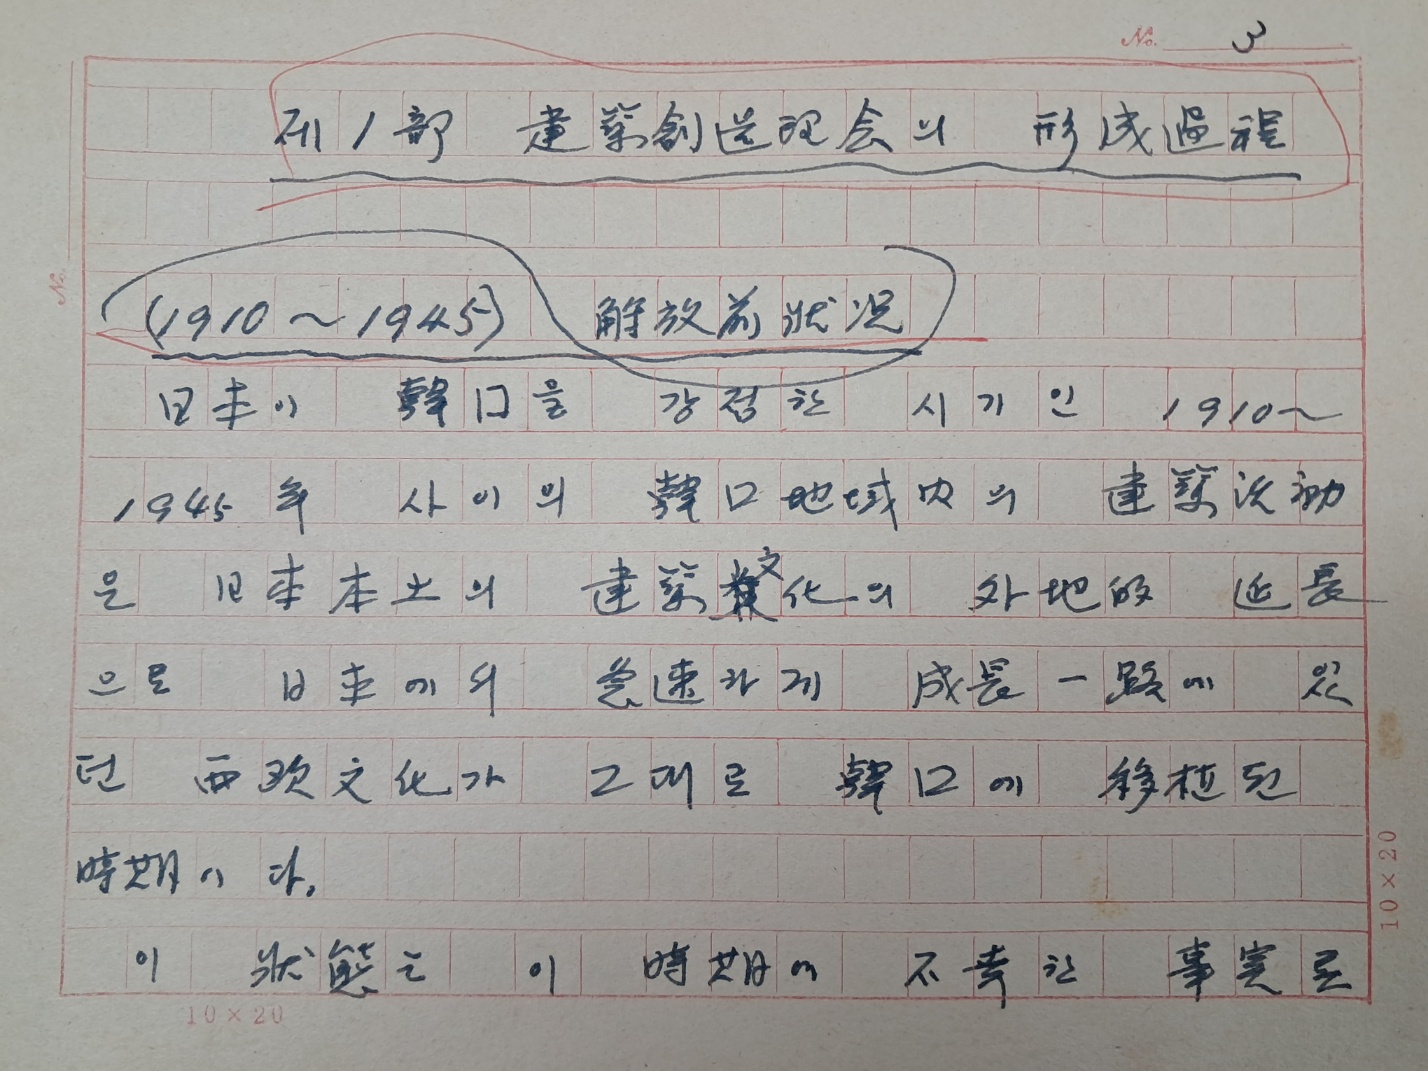 No. 3
제1部 建築創造理会의 形成過程
No.
(1910～1945) 解放前状況
日本이 韓口을 강점한 시기인 1910～
1945年 사이의 韓口地域内의 建築活動
은 日本本土의 建築文化의 外地的 延長
으로 日本에서 急速하게 成長一路에 있
던 西欧文化가 그대로 韓口에 移植된
時期이다.
이 狀態는 이 時期에 不幸한 事実로
10×20
10×20